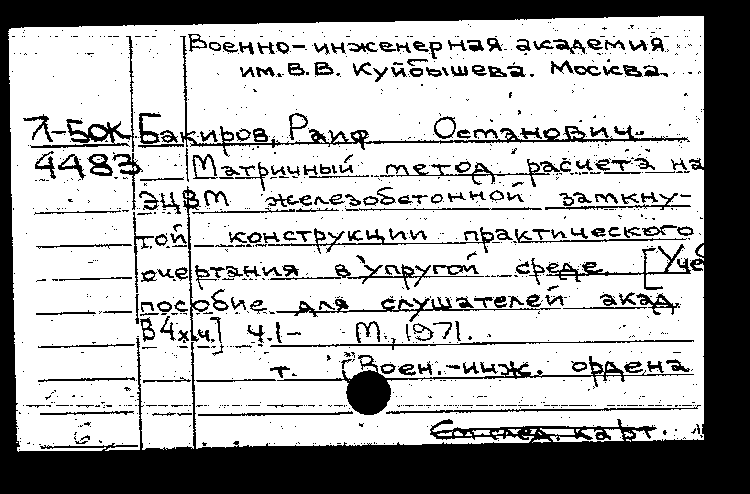 Военно-инженерная академия
им. В.В. Куйбышева. Москва.
Л-БОК Бакиров, Раиф Останович.
4483 Матричный метод расчета на
ЭЦВМ железобетонной замкну-
той конструкции практического
очертания в упругой среде. [Учеб
пособие для слушателей акад.
В 4х ч.] Ч.1- М., 1971.
т. (Воен.-инж. ордена
6. См след. карт.